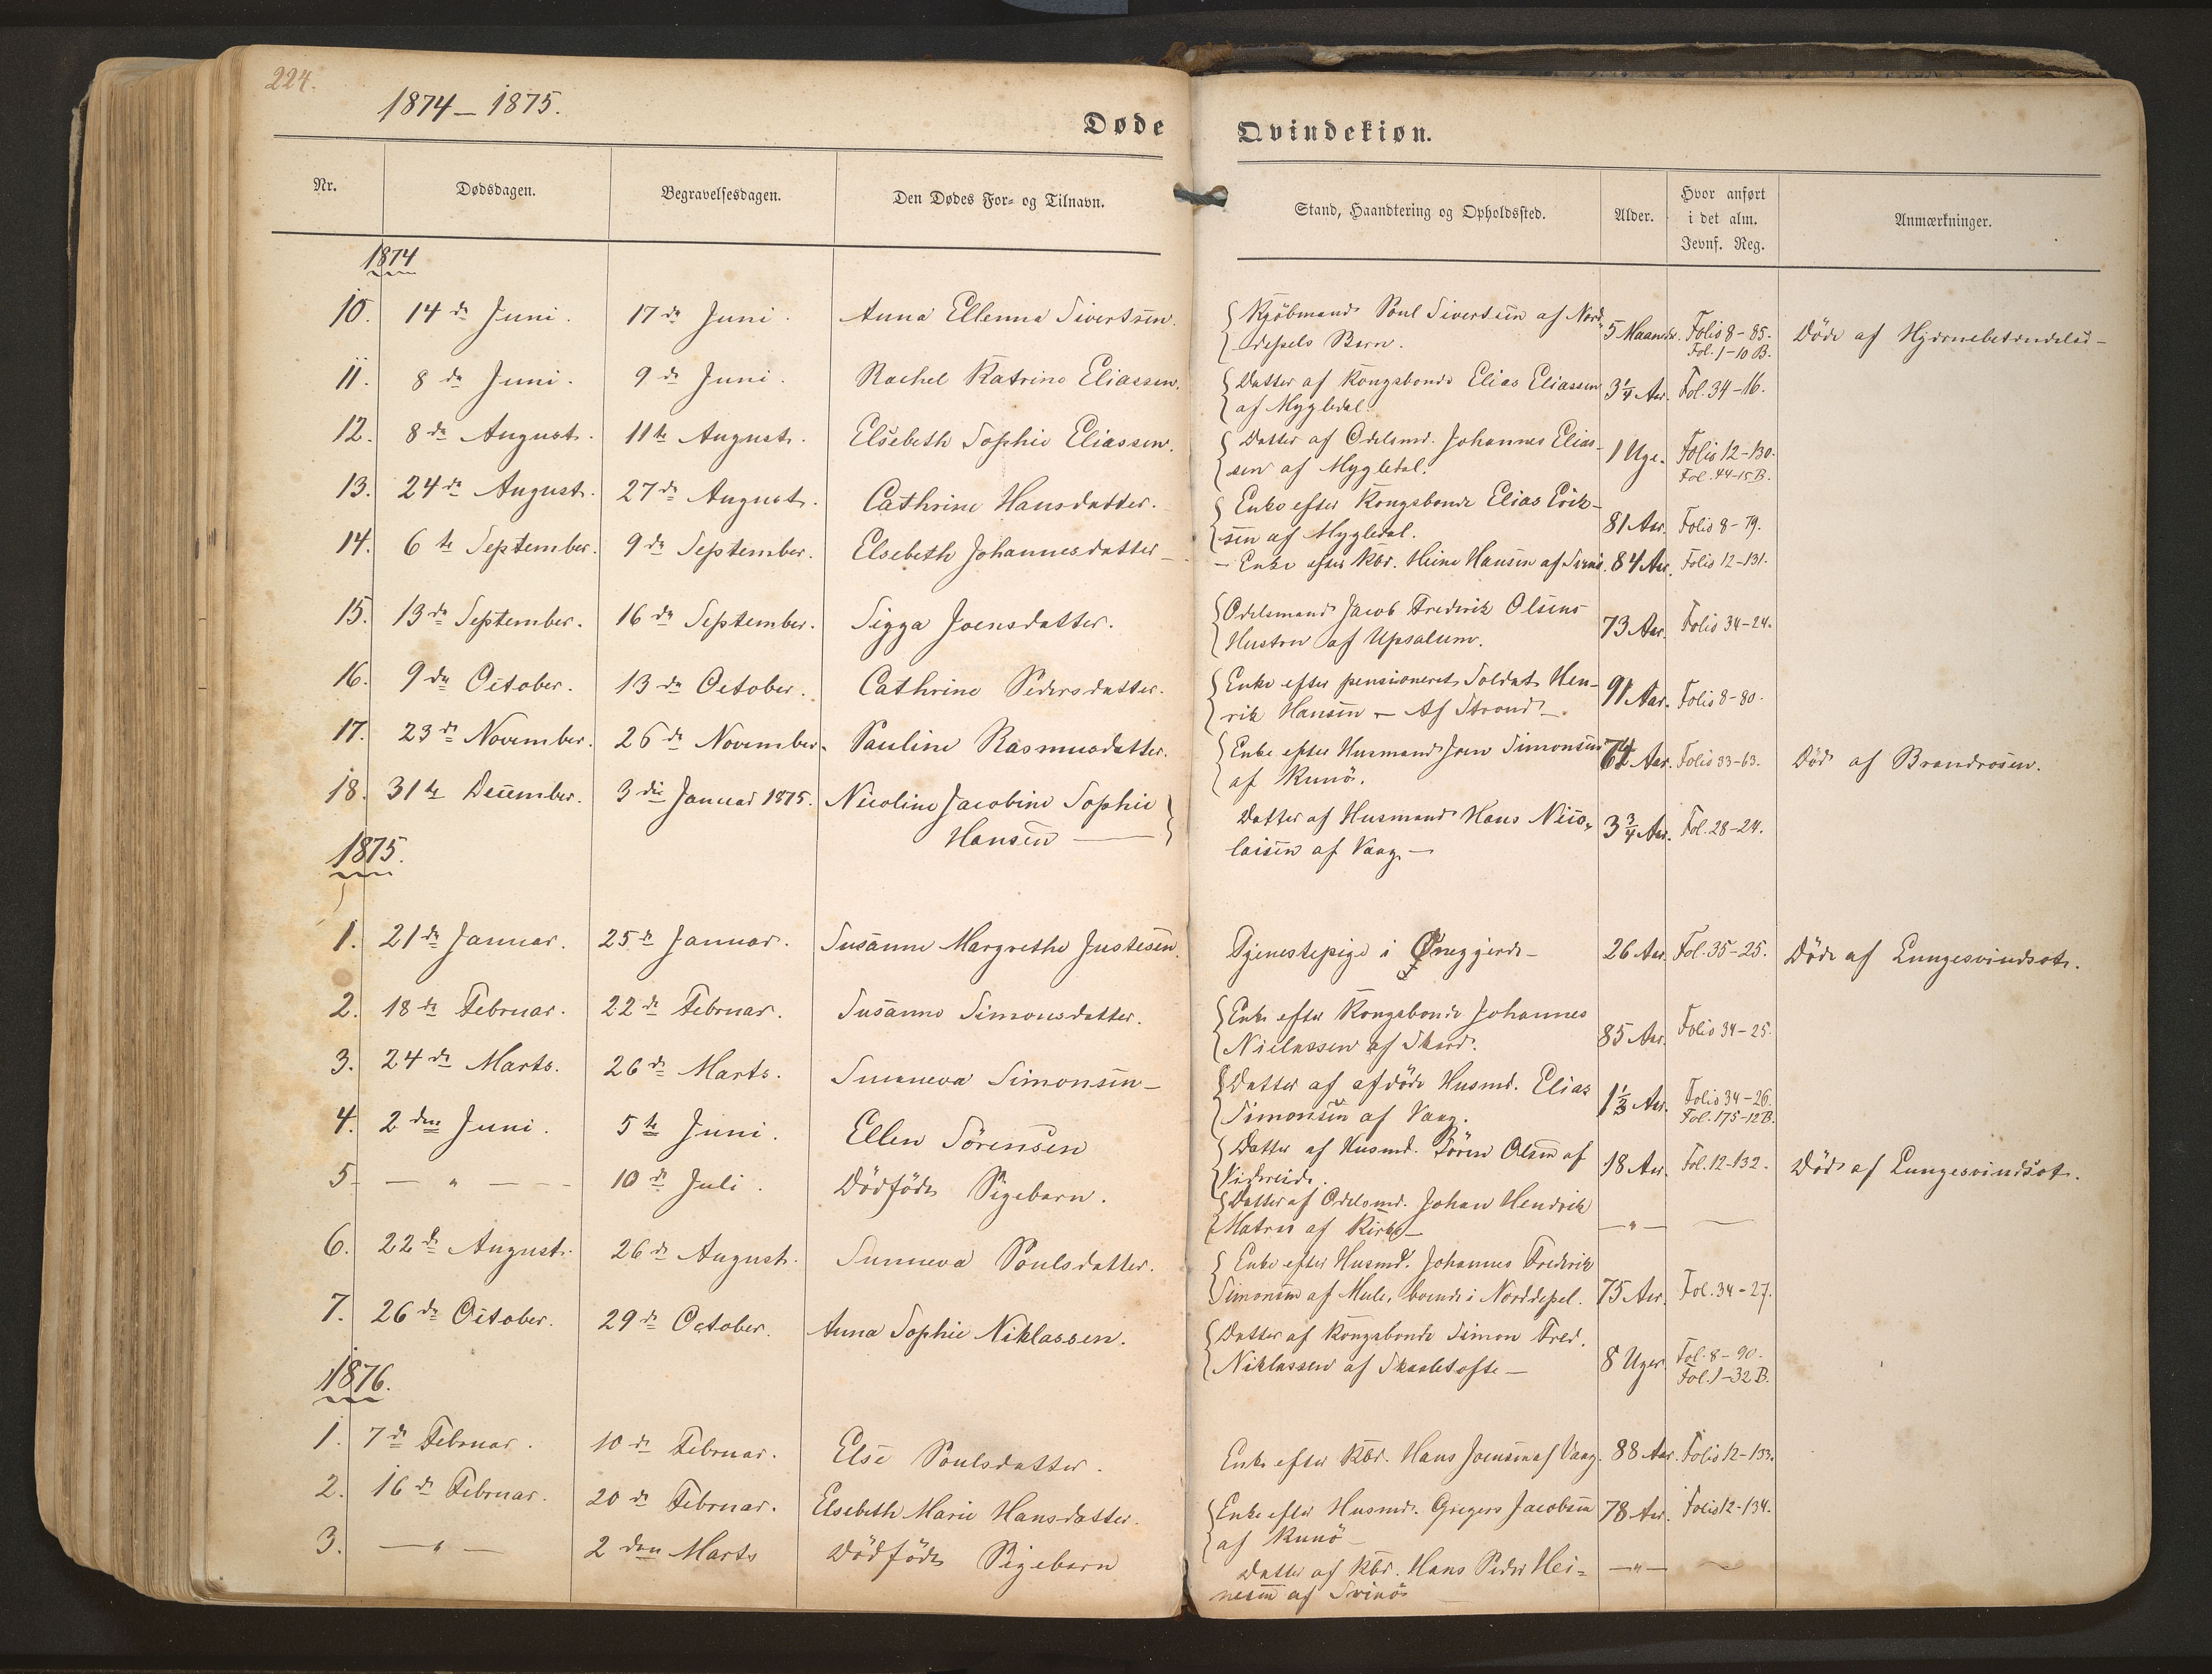 224.
1874 – 1875.
Døde Qvindekiøn.
Nr. Dødsdagen. Begravelsesdagen. Den Dødes For- og Tilnavn. Stand, Haandtering og Opholdssted. Alder. Hvor anført i det alm. Jevnf. Reg. Anmærkninger.
1874
10. 14de Juni. 17de Juni. Anna Ellenna Sivertsen. Kjöbmand Poul Sivertsen af Nord- 5 Maaneder. Folio 8-85. Döde af Hjernebetendelse-
depels Barn. Fol. 1-10 B.
11. 8de Juni. 9de Juni. Rachel Katrine Eliassen. Datter af Kongsbonde Elias Eliassen 3¼ Aar. Fol. 34-16.
af Mygledal.
12. 8de August. 11te August. Elsebeth Sophie Eliassen. Datter af Odelsmd. Johannes Elias- 1 Uge. Folio 12-130.
sen af Mygledal. Fol. 44-15 B.
13. 24de August. 27de August. Cathrine Hansdatter. Enke efter Kongsbonde Elias Erik- 81 Aar. Folio 8-79.
sen af Mygledal.
14. 6te September. 9de September. Elsebeth Johannesdatter – – Enke efter Kbr. Heine Hansen af Svinö. 84 Aar. Folio 12-131.
15. 13de September. 16de September. Sigga Joensdatter. Odelsmand Jacob Frederik Olsens 73 Aar. Folio 34-24.
Hustru af Upsalum.
16. 9de October. 13de October. Cathrine Pedersdatter. Enke efter pensioneret Soldat Hen- 91 Aar. Folio 8-80.
rik Hansen – Af Strond –
17. 23de November. 26de November. Pauline Rasmusdatter. Enke efter Husmand Joen Simonsen Aar. Folio 33-63. Död af Brandrosen.
af Kunö.
18. 31te December. 3die Januar 1875. Nicoline Jacobine Sophie Datter af Husmand Hans Nico- 3¾ Aar. Fol. 28-24.
Hansen — laisen af Vaag. —
1875.
1. 21de Januar. 25de Januar. Susanne Margrethe Justesen. Tjenestepige i Öneggjerde – 26 Aar. Fol. 35-25. Döde af Lungesvindsot.
2. 18de Februar. 22de Februar. Susanne Simonsdatter. Enke efter Kongsbonde Johannes 85 Aar. Folio 34-25.
Niclassen af Skard.
3. 24de Marts. 26de Marts. Sunneva Simonsen – Datter af afdöde Husmd. Elias 1½ Aar. Folio 34-26.
Simonsen af Vaag. Fol. 175-12 B.
4. 2den Juni. 5te Juni. Ellen Sörensen Datter af Husmd. Sören Olsen af 18 Aar. Fol. 12-132. Död af Lungesvindsot.
Videreide.
5 — " — 10de Juli. Dödfödt Pigebarn. Datter af Odelsmd. Johan Hendrik — " — —
Matras af Kirke –
6. 22de August. 26de August. Sunneva Poulsdatter. Enke efter Husmd. Johannes Frederik
Simonsen af Mule, boende i Norddepel. 75 Aar. Fol. 34-27.
7. 26de October. 29de October. Anna Sophie Niklassen. Datter af Kongsbonde Simon Fred. 8 Uger. Fol. 8-90.
Niklassen af Skaaletofte — Fol. 1-32 B.
1876.
1. 7de Februar. 10de Februar. Else Poulsdatter. Enke efter Kbr. Hans Joensen af Vaag. 88 Aar. Folio 12-133.
2. 16de Februar. 20de Februar. Elsebeth Marie Hansdatter. Enke efter Husmd. Gregers Jacobsen 78 Aar. Folio 12-134.
af Kunö –
3. — " — 2den Marts Dödfödt Pigebarn Datter af Kbr. Hans Peder Hei- — " — —
nesen af Svinö